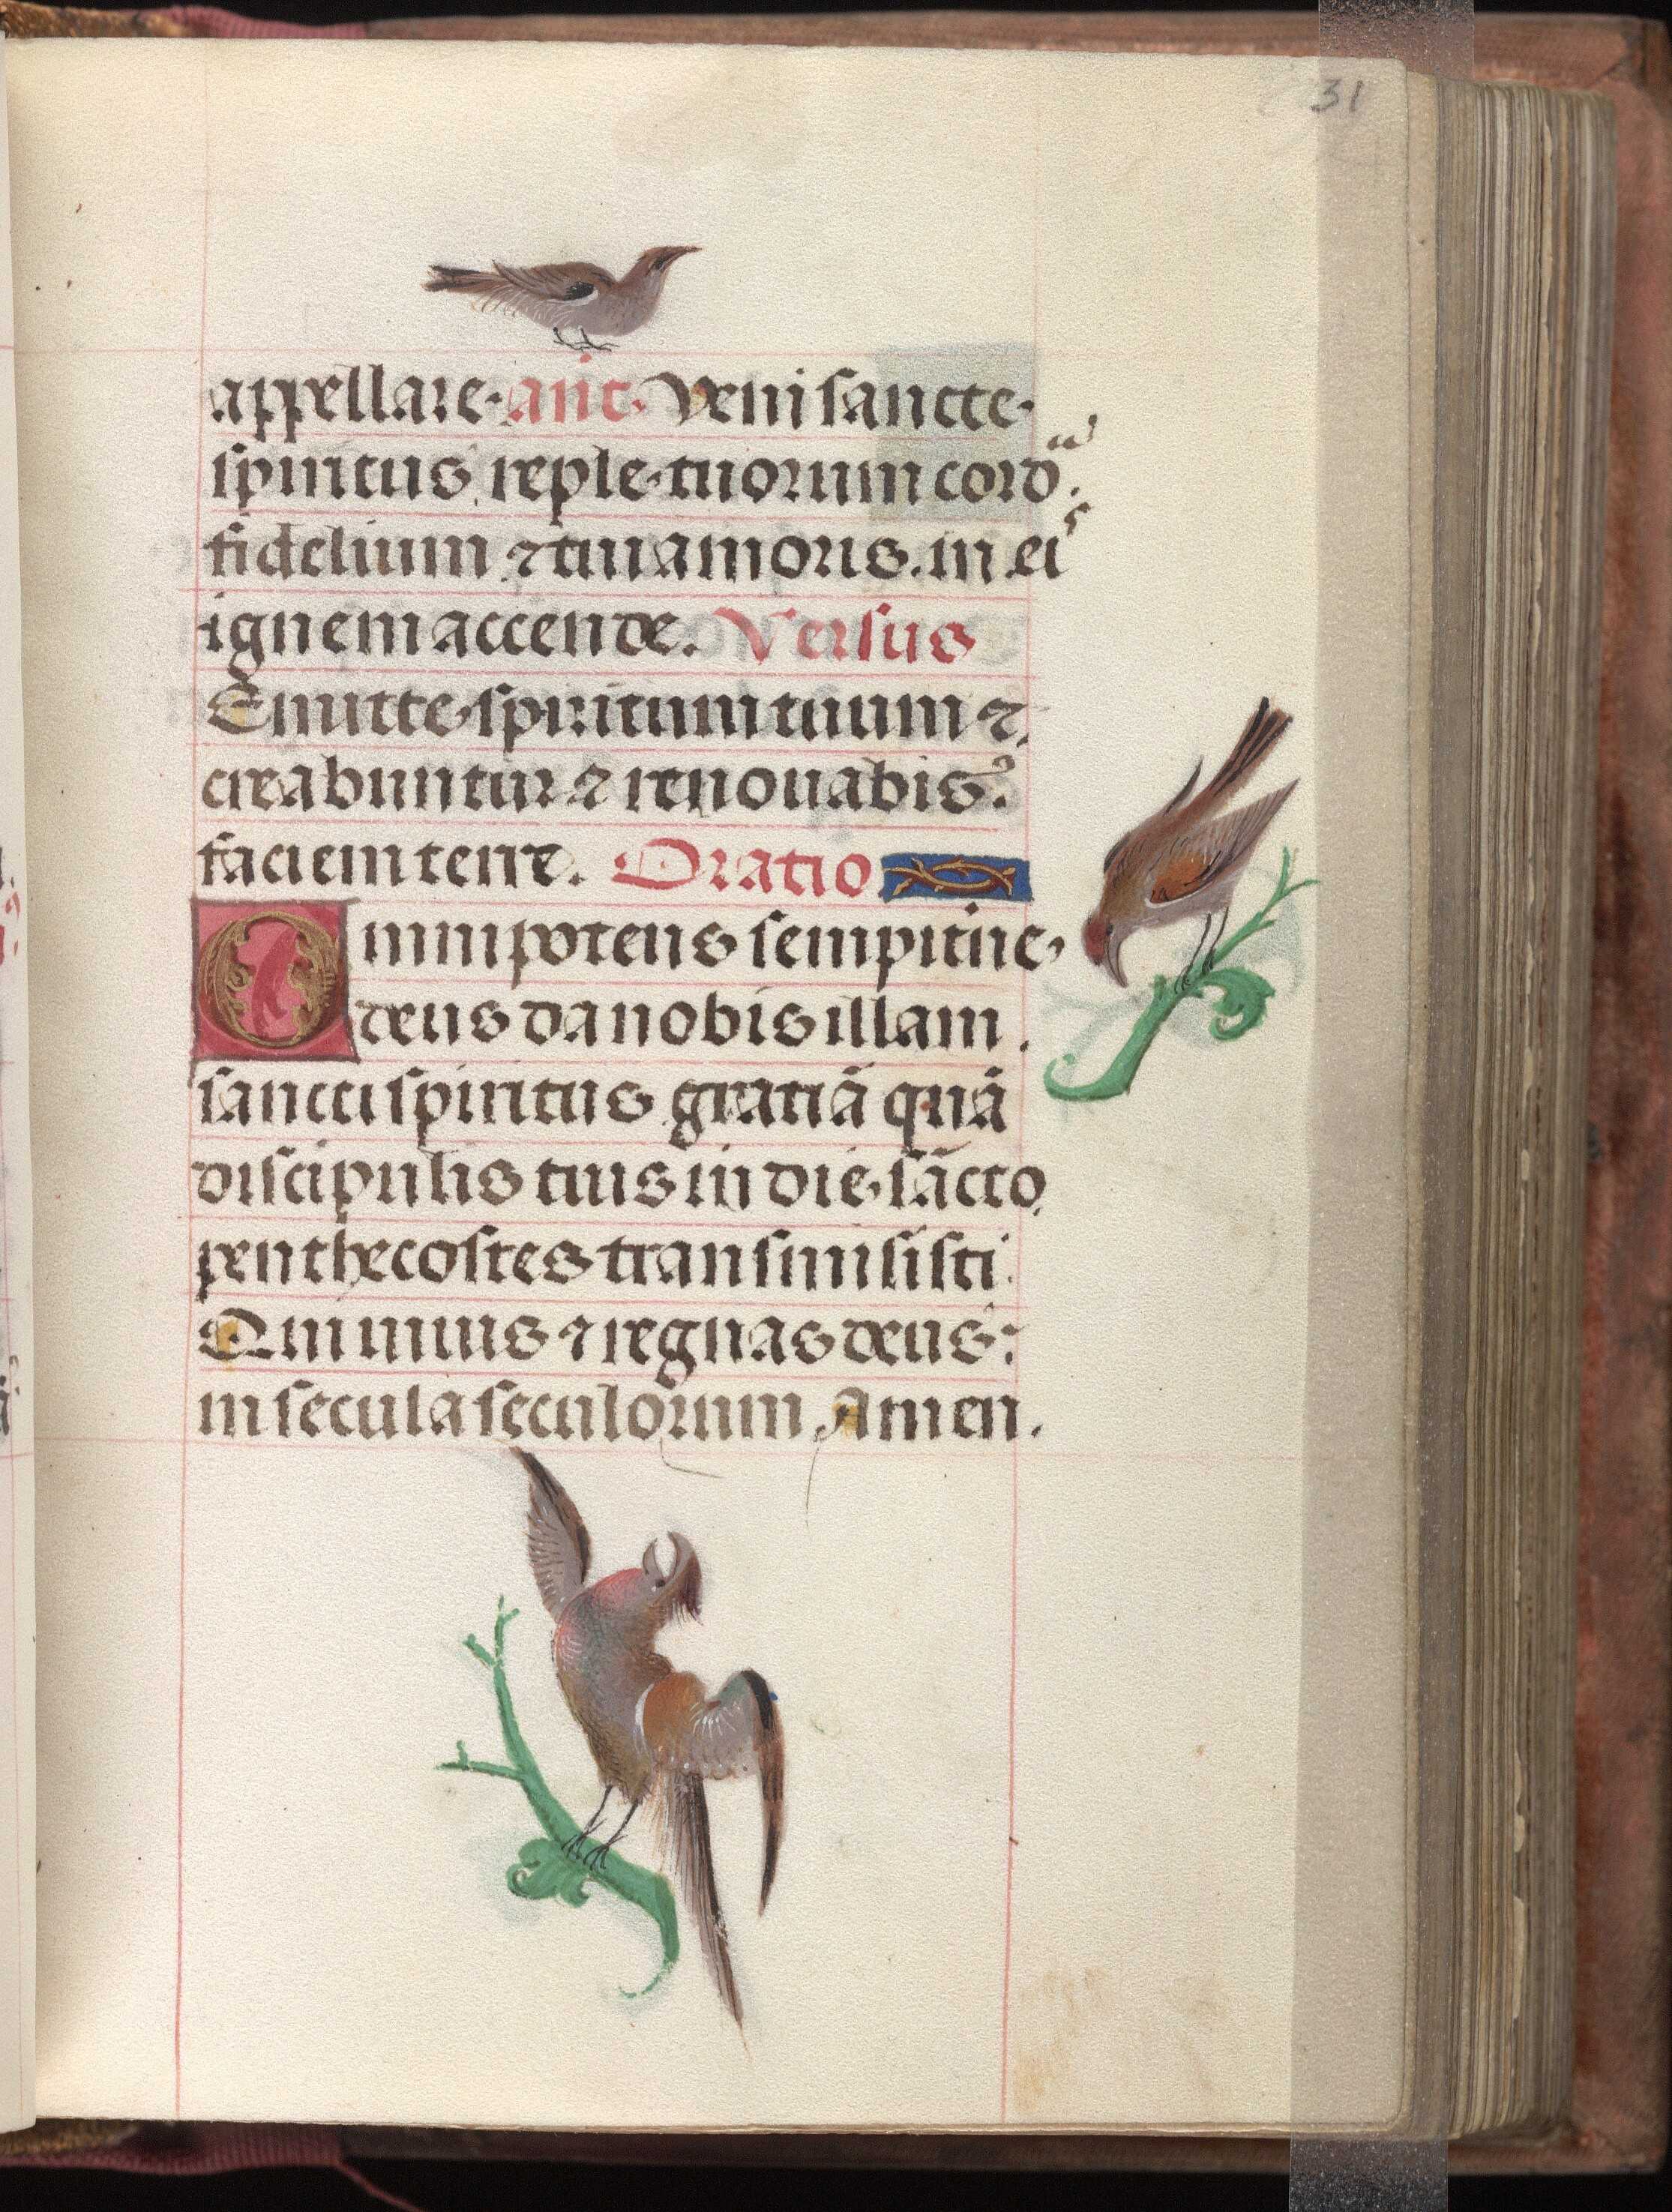 31
appellare. añt. Veni sancte
spiritus reple tuorum cord
fidelium ⁊ tui amoris. in eis
ignem accende. Versus
Emitte spiritum tuum ⁊
creabuntur ⁊ renouabis
faciem terre. Oratio
Omnipotens sempiterne
deus da nobis illam
sancti spiritus gratiā quā
discipulis tuis in die sācto
penthecostes transmisisti
Qui uiuis ⁊ regnas deus
in secula seculorum Amen.